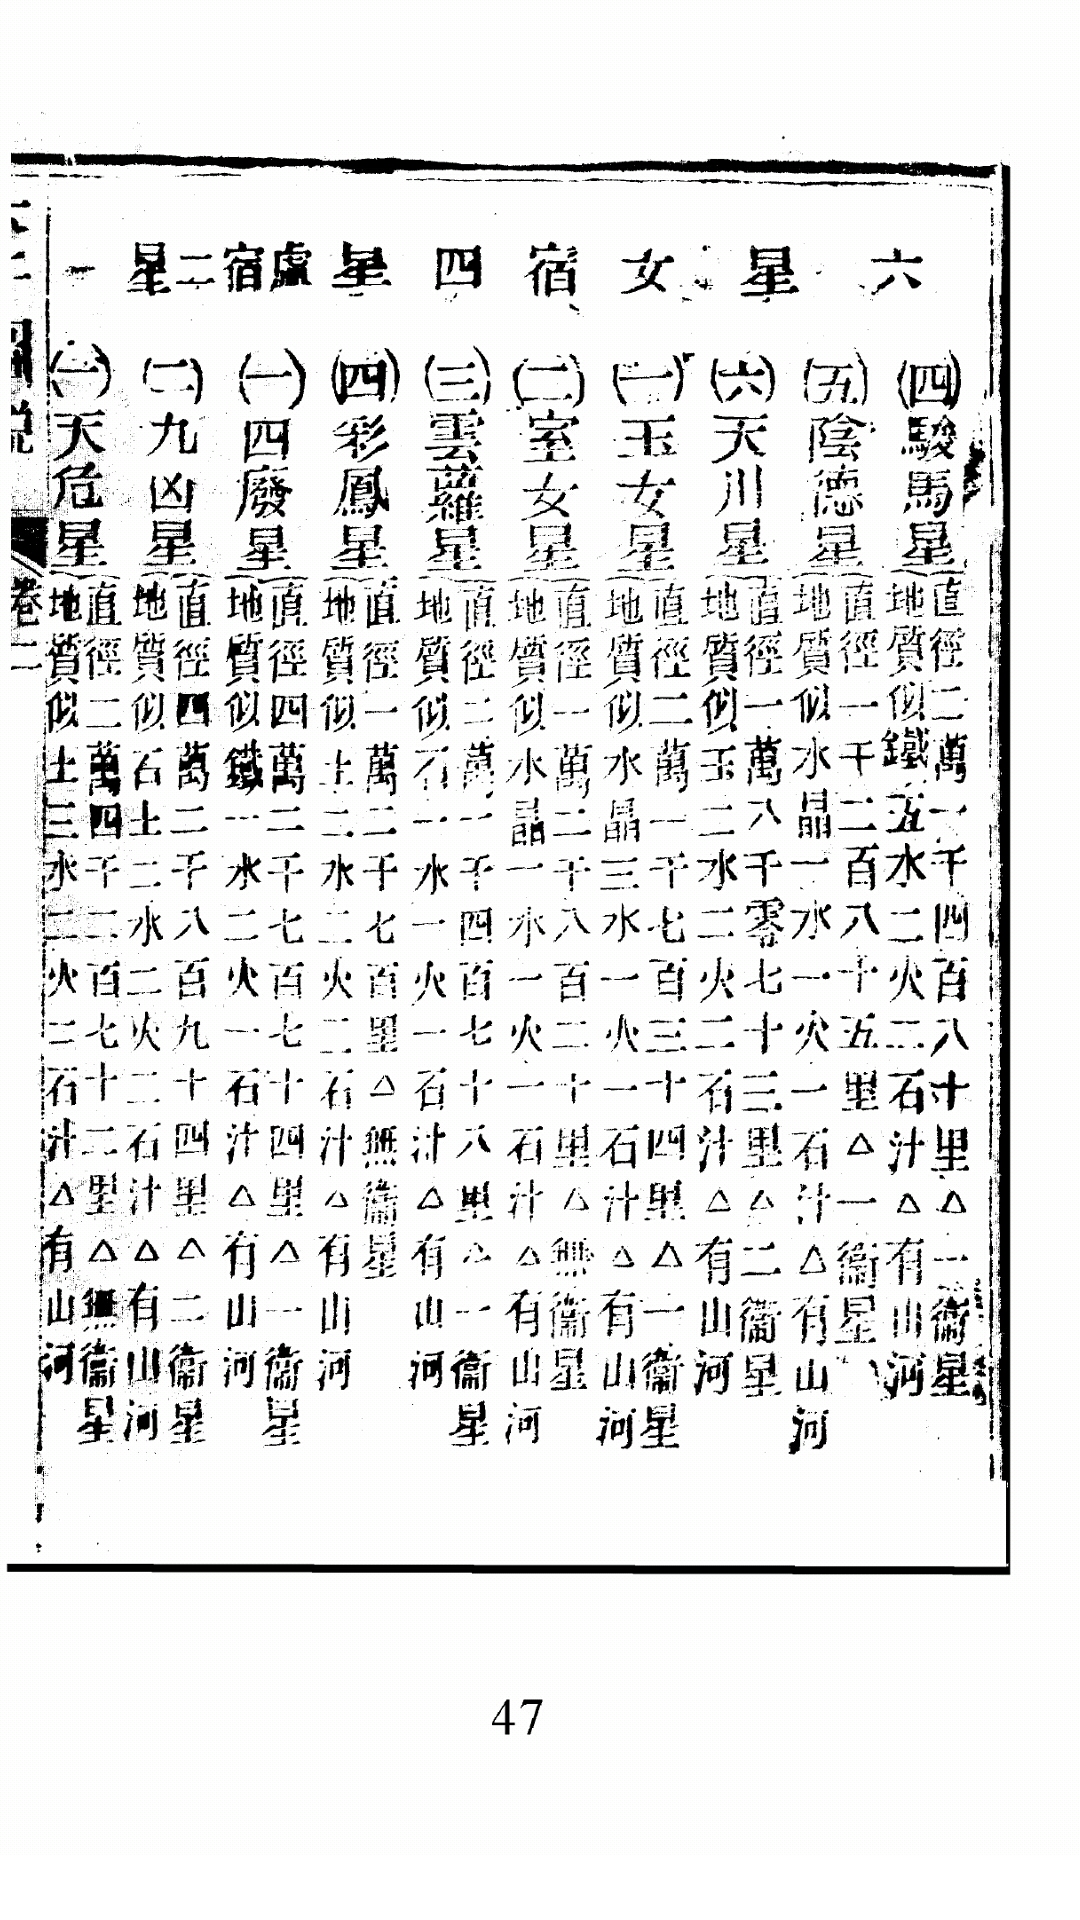 六　星　女　宿　四　星　虛宿　二星　一
㈣駿馬星
直徑二萬一千四百八十里△一衞星
地質似鐵五水二火二石汁△有山河
㈤陰德星
直徑一千二百八十五里△一衞星
地質似水晶一水一火一石汁△有山河
㈥天川星
直徑一萬八千零七十三里△二衞星
地質似玉二水二火二石汁△有山河
㈠玉女星
直徑二萬一千七百三十四里△一衞星
地質似水晶三水一火一石汁△有山河
㈡室女星
直徑一萬二千八百二十里△無衞星
地質似水晶一水一火一石汁△有山河
㈢雲蘿星
直徑二萬一千四百七十八里△一衞星
地質似石一水一火一石汁△有山河
㈣彩鳳星
直徑一萬二千七百里△無衞星
地質似土二水二火二石汁△有山河
㈠四廢星
直徑四萬二千七百七十四里△一衞星
地質似鐵一水二火一石汁△有山河
㈡九凶星
直徑四萬二千八百九十四里△二衞星
地質似石土二水二火二石汁△有山河
㈠天危星
直徑二萬四千二百七十二里△無衞星
地質似土三水二火二石汁△有山河
卷二
47